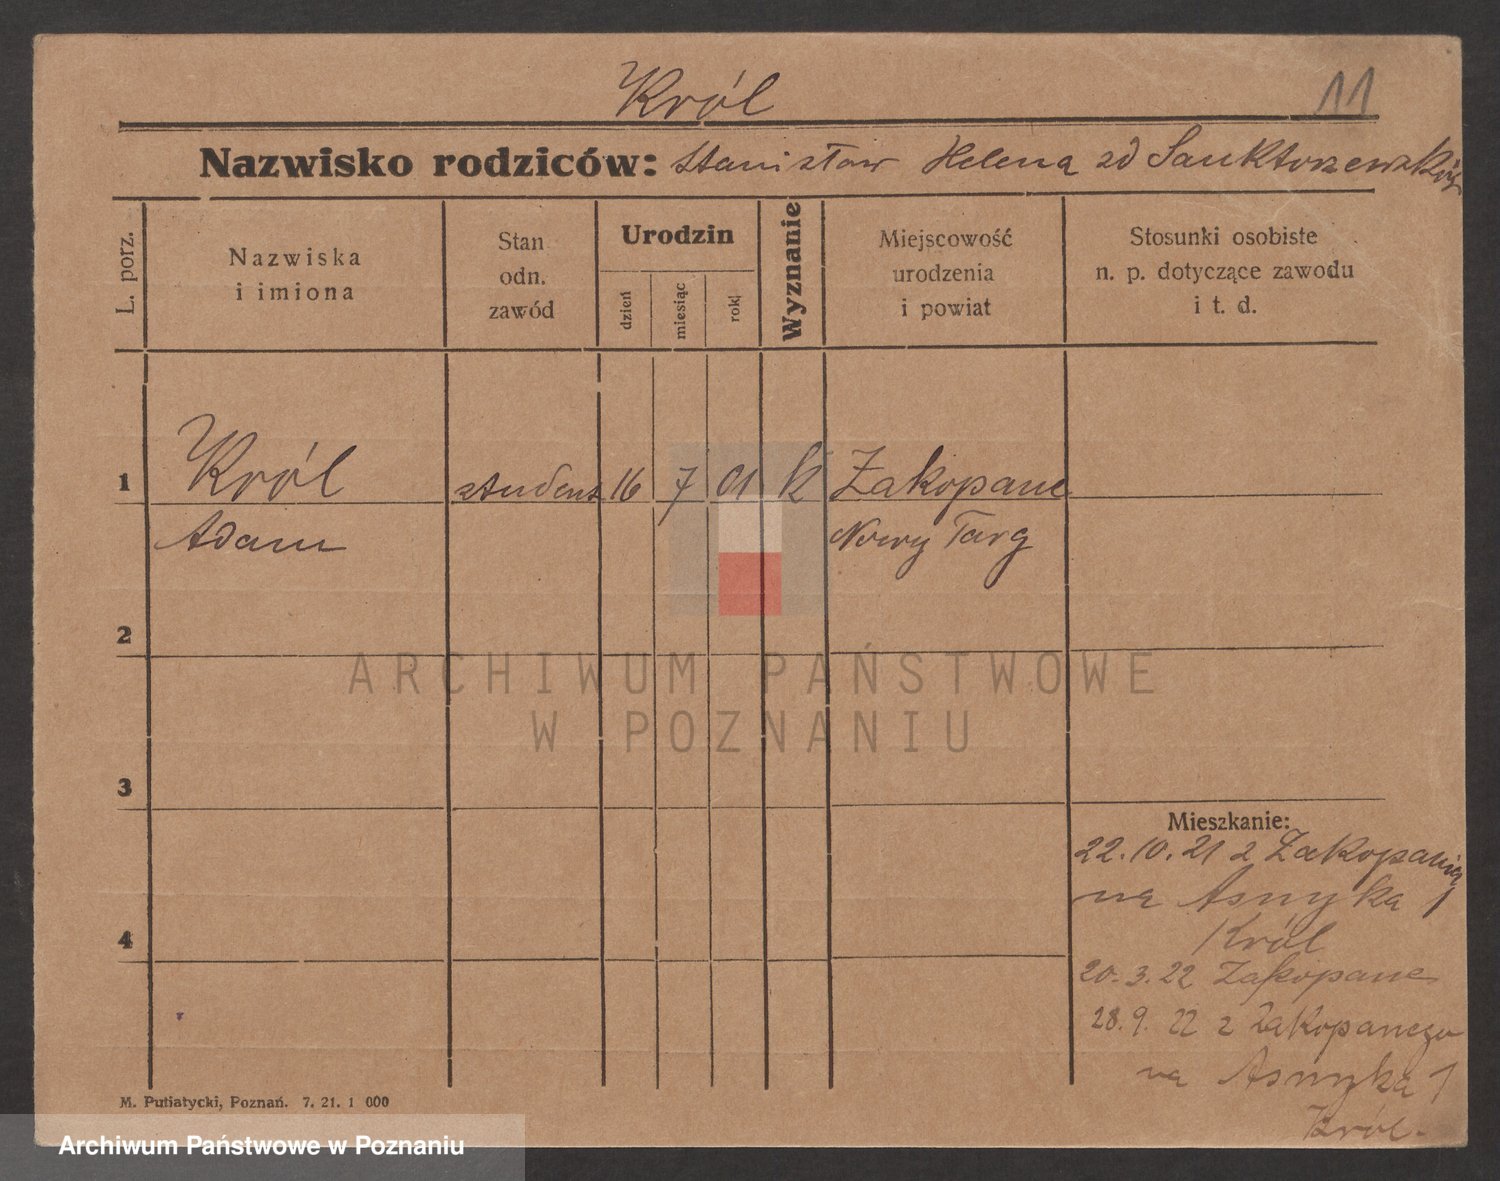 Król
11
Nazwisko rodziców: Stanisław Helena zd
L. porz.
Nazwiska
i imiona
Stan
odn.
zawód
Urodzin
dzień
miesiąc
rok
Wyznanie
Miejscowość
urodzenia
i powiat
Stosunki osobiste
n. p. dotyczące zawodu
i t. d.
1
Król
student
16
7
01
k
Zakopane
Adam
Nowy Targ
2
ARCHIWUM PAŃSTWOWE
W POZNANIU
3
Mieszkanie:
22.10.21 z
na Asnyka 1
4
Król
20.3.22 Zakopane
28.9.22 z Zakopanego
na Asnyka 1
Król.
M. Putiatycki, Poznań. 7. 21. 1 000
Archiwum Państwowe w Poznaniu